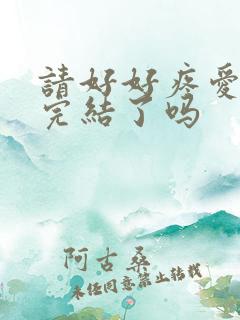 請好好疼愛
完結了吗
阿古桑
未經同意禁止转载